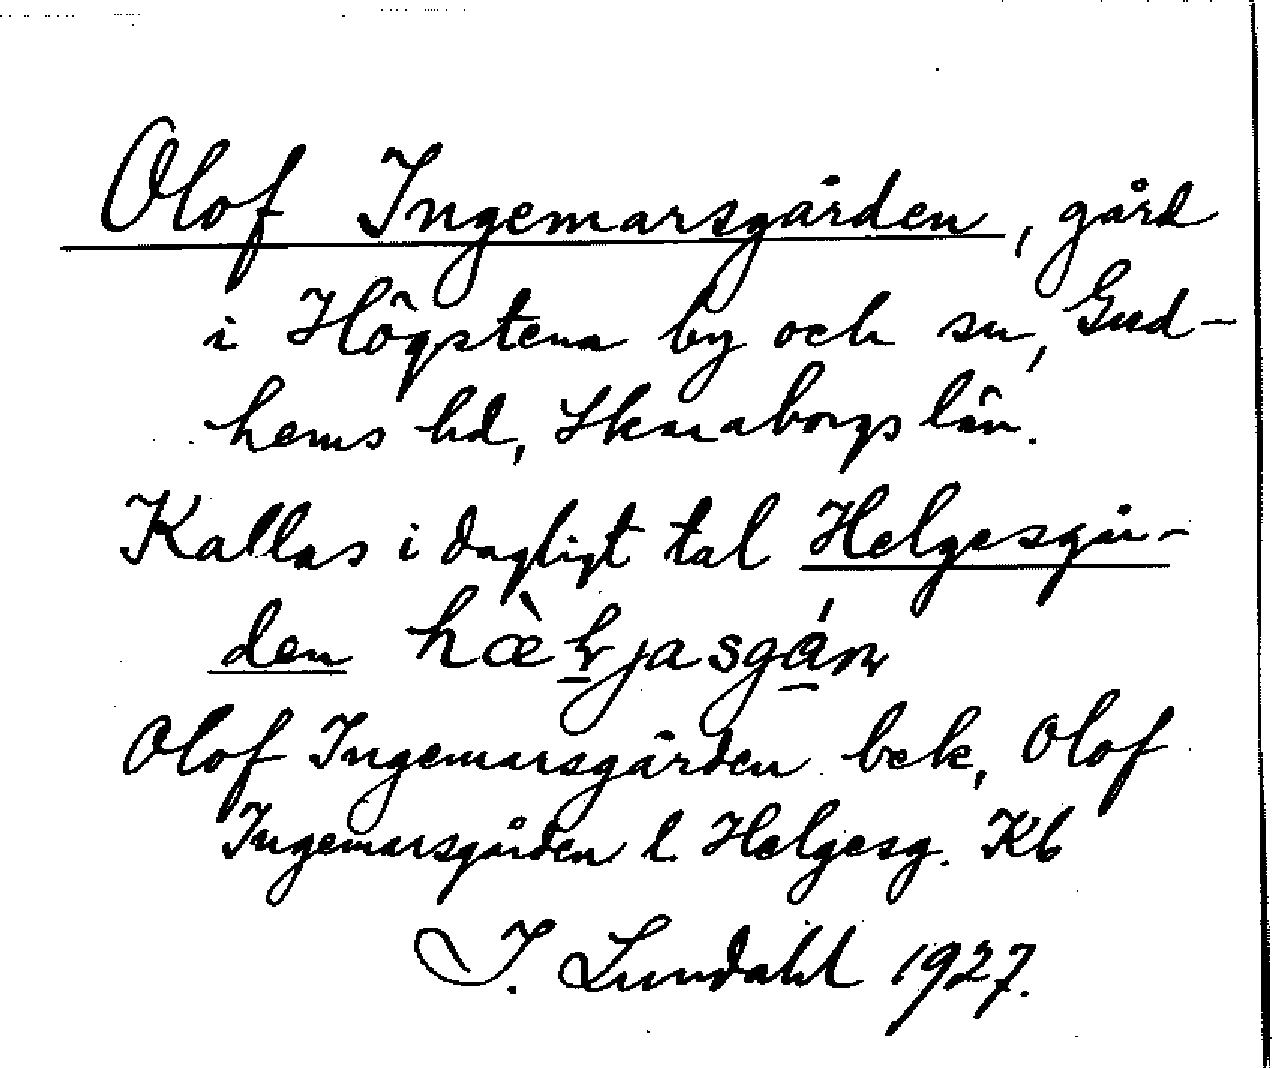 Olof Ingemarsgården, gård
i Högstena by och sn, Gud-
hems hd, Skaraborgs län.
Kallas i dagligt tal Helgesgår-
den
Olof Ingemarsgården bek, Olof
Ingemarsgården l. Helgesg. Kb
I. Lundahl 1927.